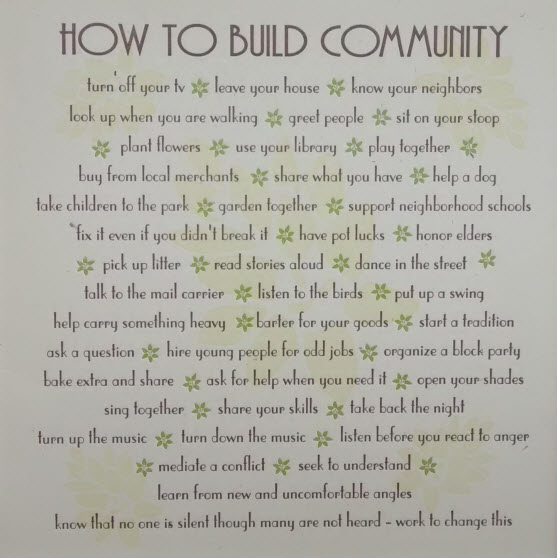 HOW TO BUILD COMMUNITY
turn off your tv leave your house know your neighbors
look up when you are walking greet people sit on your stoop
plant flowers use your library play together
buy from local merchants share what you have help a dog
take children to the park garden together support neighborhood schools
fix it even if you didn't break it have pot lucks honor elders
pick up litter read stories aloud dance in the street
talk to the mail carrier listen to the birds put up a swing
help carry something heavy barter for your goods start a tradition
ask a question hire young people for odd jobs organize a block party
bake extra and share ask for help when you need it open your shades
sing together share your skills take back the night
turn up the music turn down the music listen before you react to anger
mediate a conflict seek to understand
learn from new and uncomfortable angles
know that no one is silent though many are not heard - work to change this